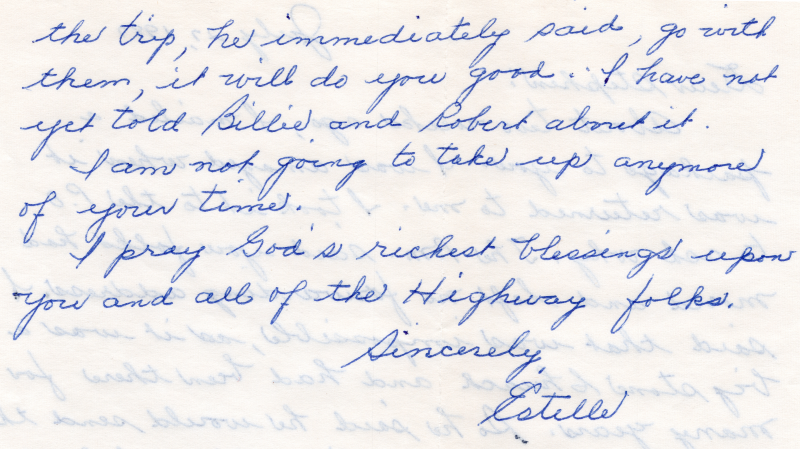 the trip, he immediately said, go with
them, it will do you good. I have not
yet told Billie and Robert about it.
I am not going to take up anymore
of your time.
I pray God's richest blessings upon
you and all of the Highway folks.
Sincerely,
Estelle